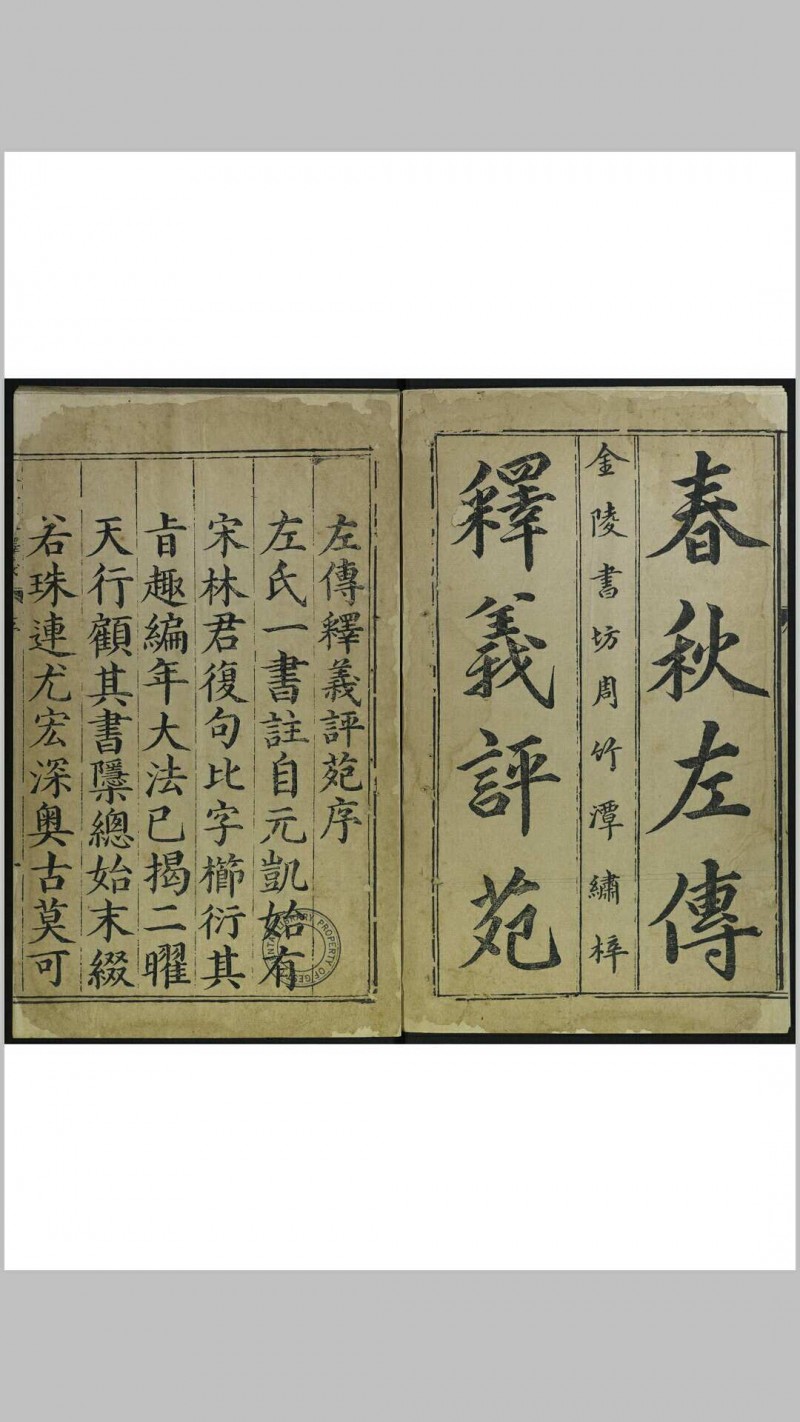 春秋左傳
金陵書坊周竹潭繡梓
釋義評苑
左傳釋義評苑序
左氏一書註自元凱始有
宋林君復句比字櫛衍其
旨趣編年大法已揭二曜
天行顧其書隱櫽總始末綴
若珠連尤宏深奧古莫可
PROPERTY OF